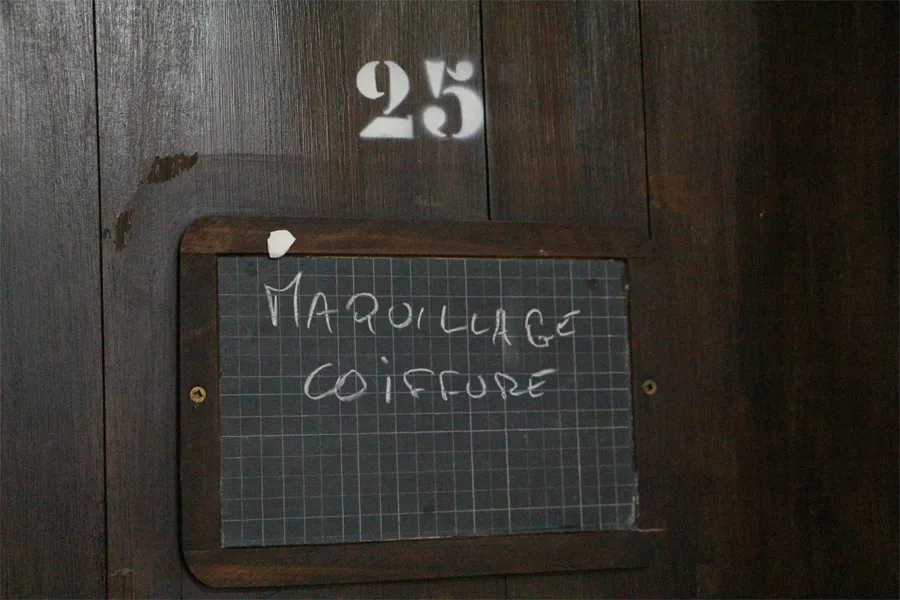 25
MAQUILLAGE
COIFFURE